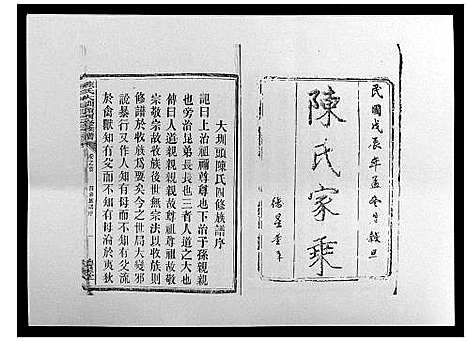 民國戊辰年孟冬月穀旦
陳氏家乘
德星堂
大圳頭陳氏四修族譜序
記曰上治祖禰尊尊也下治子孫親親
也旁治昆弟長長三者人道之大也
傳曰人道親親親親故尊祖尊祖故敬
宗敬宗故收族後世無宗法以收族則
修譜於收族爲要矣今之世局大變邪
說暴行又作人知有母而不知有父流
於禽獸知有母而不知有母淪於夷狄